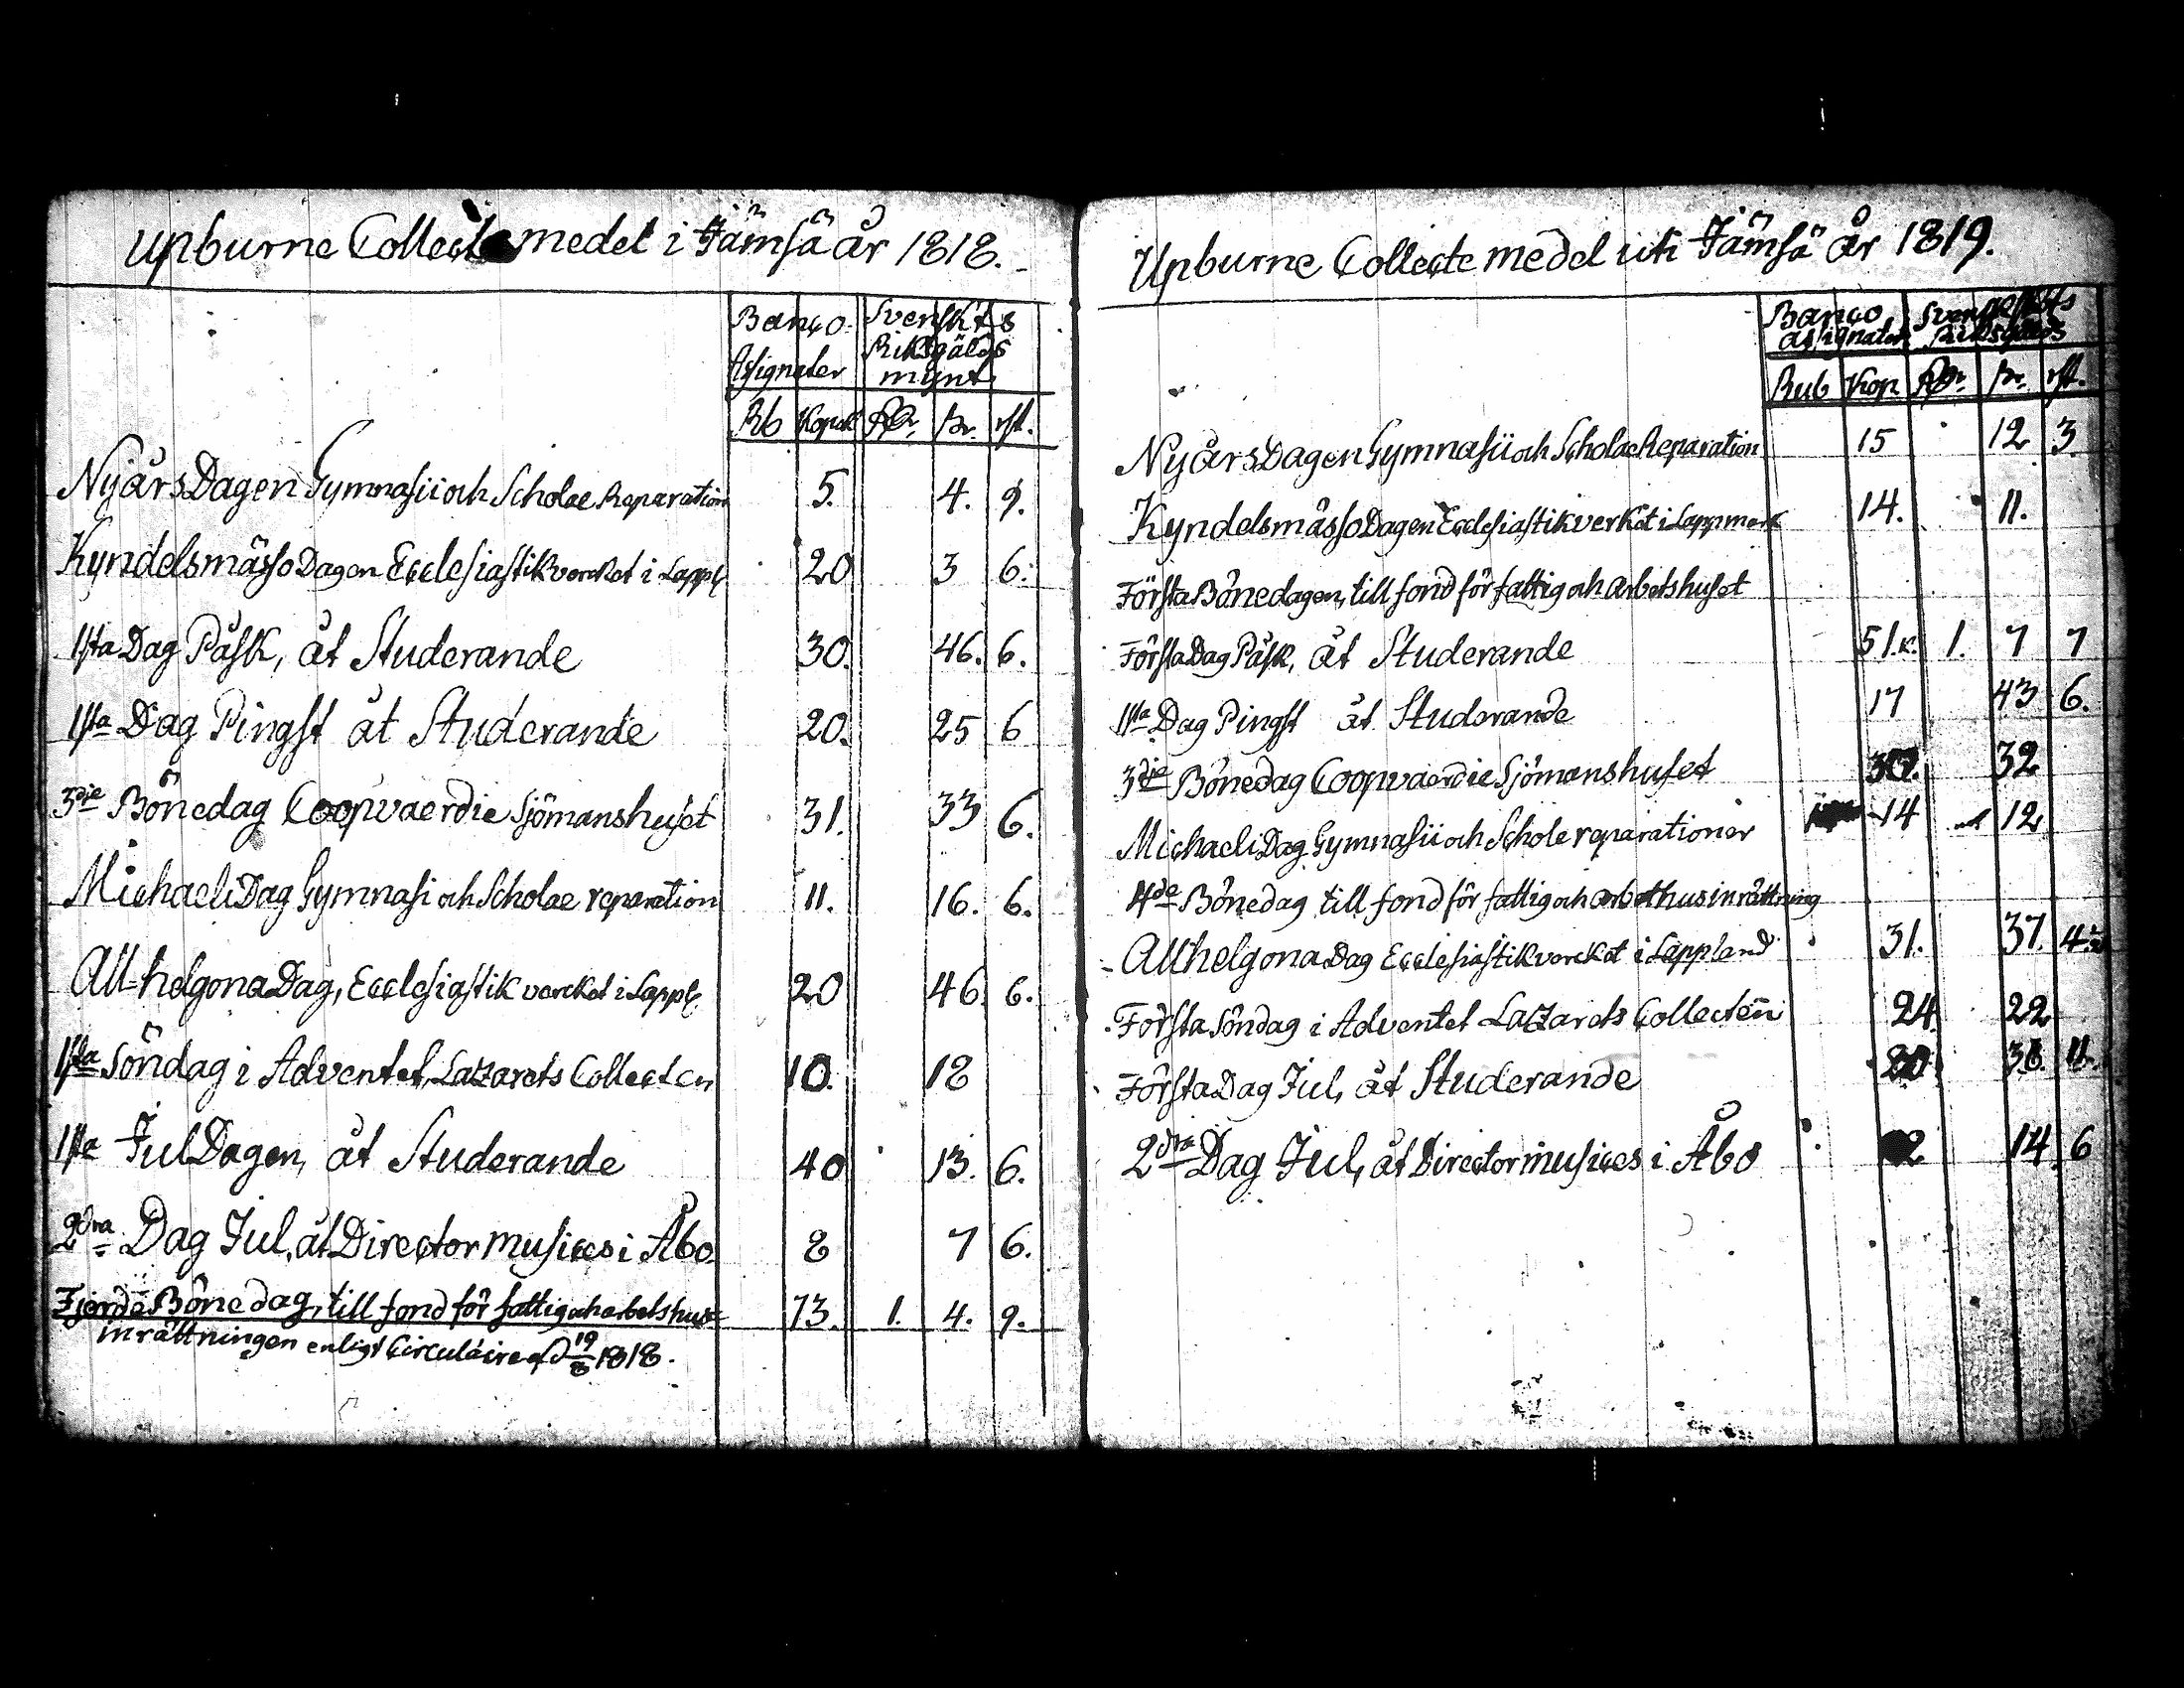 Upburne Collecte medel i Jämsä år 1818.
Banco Assignater Svenskt Riksgälds mynt
Rb Kopek Rdr. ſz. rſt.
Nyårs Dagen Gymnasii och Scholae Reparation 5. 4. 9.
Kyndelsmässo Dagen Ecclesiastikverket i Lappl. 20 3 6.
1sta Dag Påsk, åt Studerande 30. 46. 6.
1sta Dag Pingst åt Studerande 20. 25 6
3die Bönedag Coopvaerdie Sjömanshuset 31. 33 6.
Michaeli Dag Gymnasi och Scholae reparation 11. 16. 6.
All-helgona Dag, Ecclesiastik verket i Lappl. 20 46. 6.
1sta Söndag i Adventet, Latzarets Collecten 10. 18
1sta Jul Dagen, åt Studerande 40 13. 6.
2dra Dag Jul, åt Director musices i Åbo. 8 7 6.
Fjerde Bönedag, till fond för fattig och arbetshus 73. 1. 4. 9.
inrättningen enligt Circulaire af d 19/8 1818.
Upburne Collecte medel uti Jämsä år 1819.
Banco assignater Riksgälds
Rub Kop Rdr. ſz. rſt.
Nyårs Dagen Gymnasii och Scholae Reparation 15 12 3.
Kyndelsmässo Dagen Ecclesiastikverket i Lappmark 14. 11.
Första Bönedagen, till fond för fattig och arbetshuset
Första Dag Påsk, åt Studerande 51.k. 1. 7 7
1sta Dag Pingst åt Studerande 17 43 6.
3die Bönedag Coopvaerdie Sjömanshuset 32
Michaeli Dag Gymnasii och Schole reparationer 14 12
4de Bönedag till fond för fattig och arbethusinrättning
Allhelgona Dag Ecclesiastikverket i Lappland 31. 37. 4.
Första Söndag i Adventet Latzarets Collecten 24. 22
Första Dag Jul, åt Studerande
2dra Dag Jul, åt Director musices i Åbo 14. 6